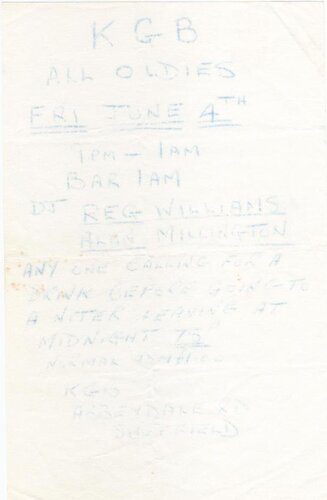 KGB
ALL OLDIES
FRI JUNE 4TH
9PM - 1AM
BAR 1AM
DJ REG WILLIAMS
ALAN MILLINGTON
ANY ONE CALLING FOR A
DRINK BEFORE GOING TO
A NITER LEAVING AT
MIDNIGHT 75P
NORMAL
KGB
ABBEYDALE RD
SHEFFIELD